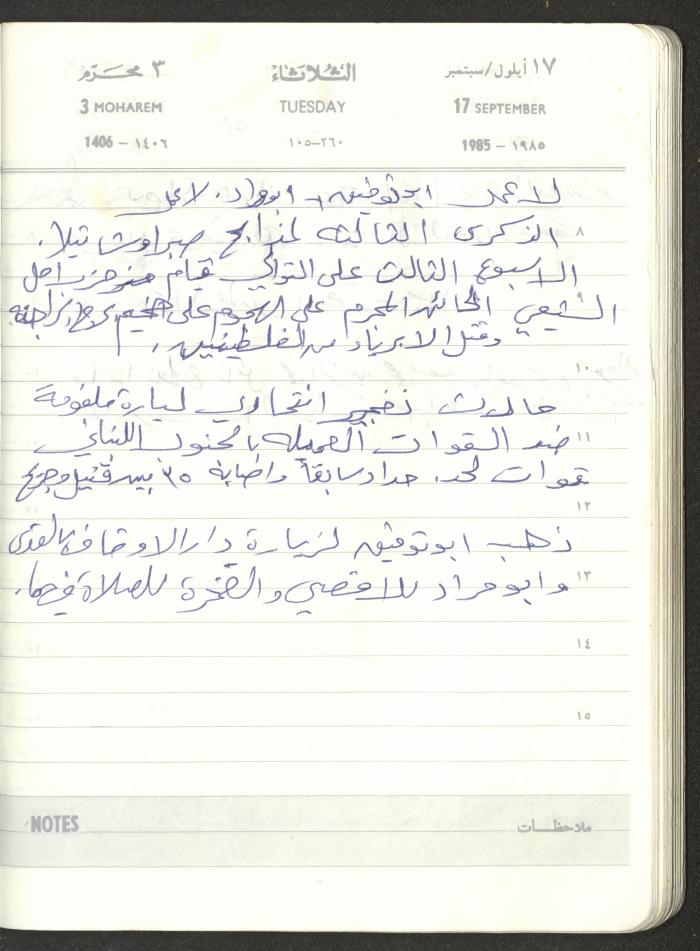 ١٧ أيلول/سبتمبر الثلاثاء ٣ محرّم
17 SEPTEMBER TUESDAY 3 MOHAREM
1985 – ١٩٨٥ ١٠٥–٢٦٠ 1406 – ١٤٠٦
لا عمل ابو توفيق + ابو مراد. لا عمل
٨ الذكرى الثالثه لمذابح صبرا وشاتيلا.
الاسبوع الثالث على التوالي قيام حزب امل
الشيعي الخائن المجرم على الهجوم على مخيم برج البراجنة
وقتل الابرياء من الفلسطينيين.
١٠
حادث تفجير انتحاري لسيارة ملغومة
١١ ضد القوات العميله بالجنوب اللبناني
قوات لحد. حداد سابقاً واصابة ٣٥ بين قتيل وجريح
١٢
ذهب ابو توفيق لزيارة دار الاوقاف بالقدس
١٣ وابو مراد للاقصى والصخرة للصلاة فيها.
١٤
١٥
NOTES ملاحظات